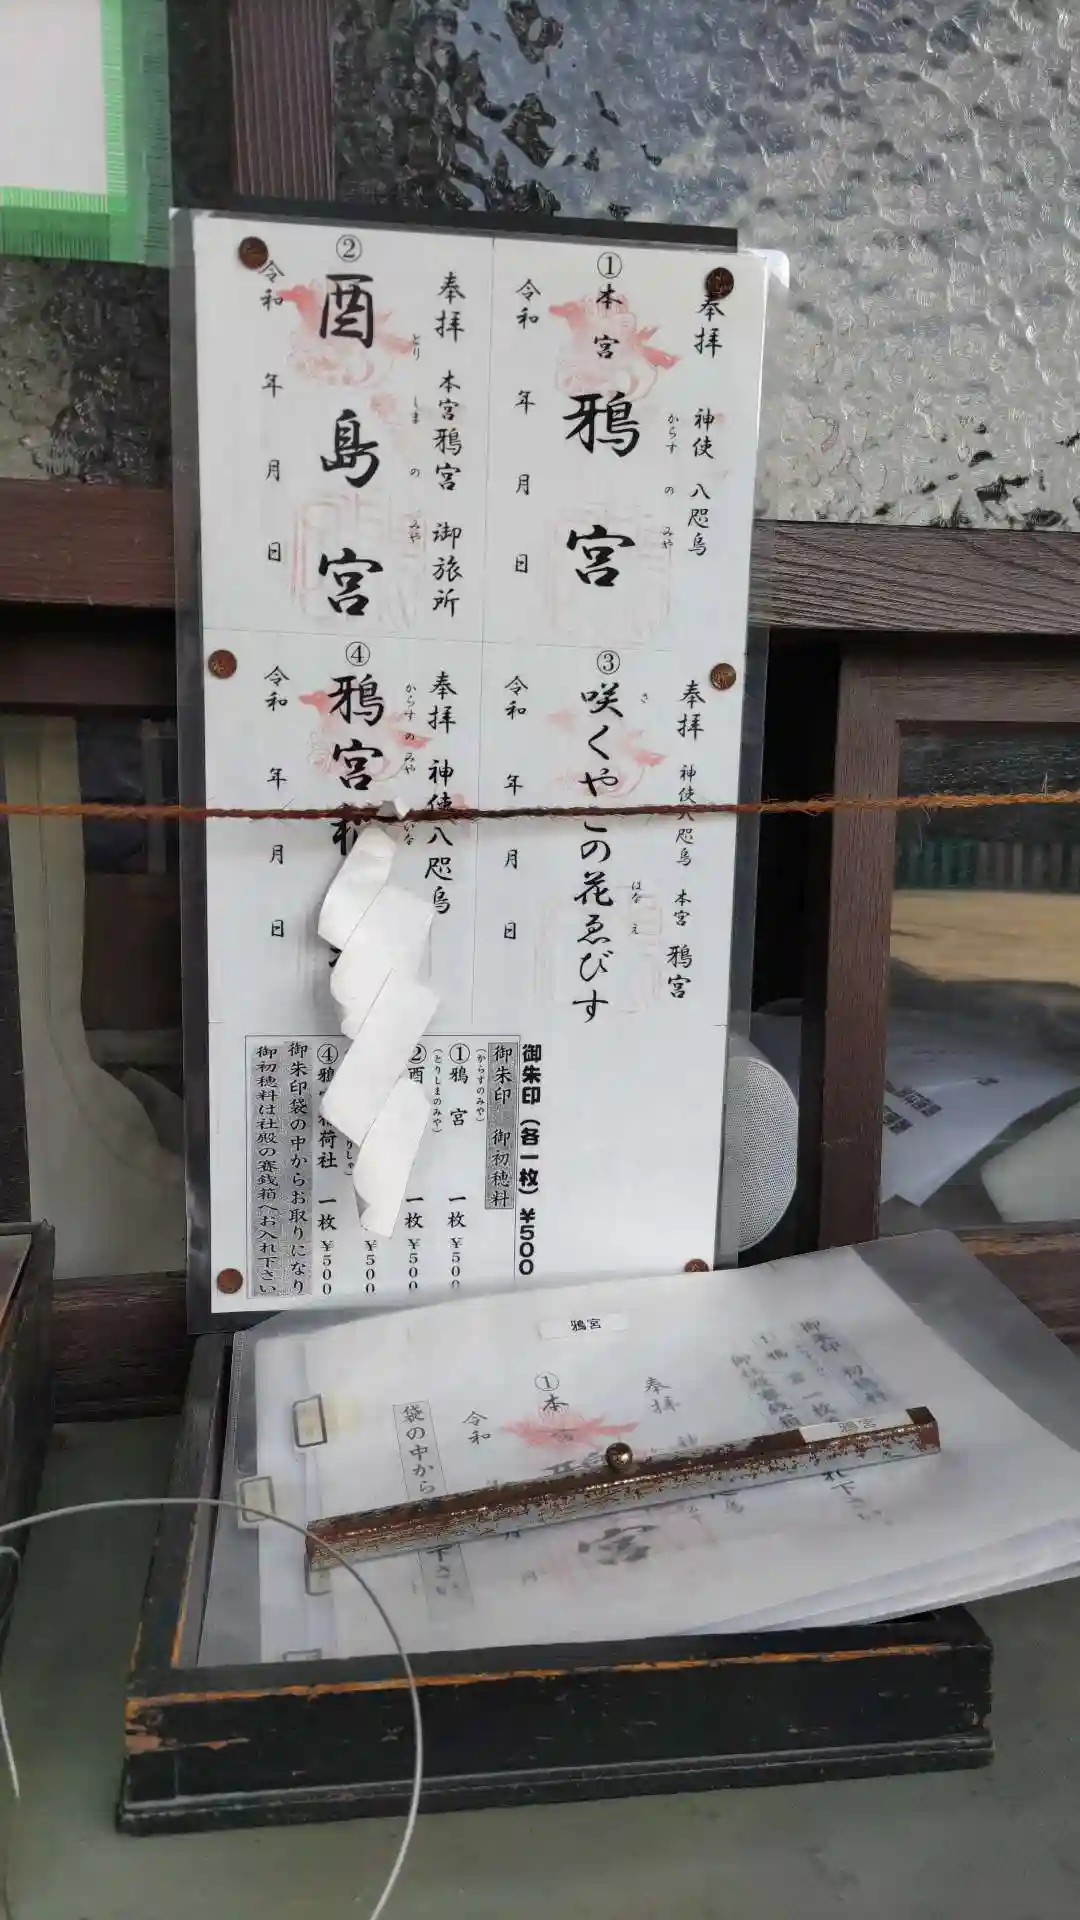 ①
奉拝 神使 八咫烏
からす の みや
本宮 鴉宮
令和 年 月 日
②
奉拝 本宮鴉宮 御旅所
とり しま の みや
酉島宮
令和 年 月 日
③
奉拝 神使八咫烏 本宮 鴉宮
さ はな ゑ
咲くやこの花ゑびす
令和 年 月 日
④
奉拝 神使八咫烏
からす の みや いな
鴉宮
令和 年 月 日
御朱印(各一枚)¥500
御朱印 御初穂料
①鴉宮 一枚 ¥500
(からすのみや)
②酉 一枚 ¥500
(とりしまのみや)
¥500
④鴉宮稲荷社 一枚 ¥500
御朱印袋の中からお取りになり
御初穂料は社殿の賽銭箱へお入れ下さい
鴉宮
①
奉拝
本宮
宮
令和
袋の中から
下さい
鴉宮